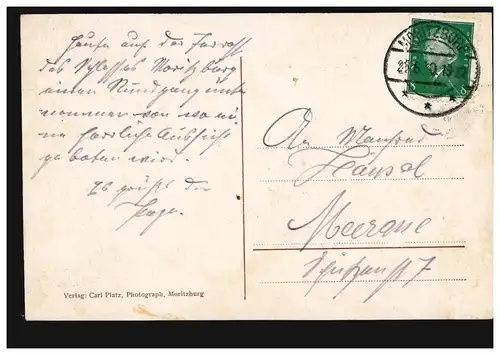 Heute auf der Terrasse
des Schlosses Moritzburg
einen Rundgang unter-
nommen von wo ei-
ne herrliche Aussicht
geboten wird.
Es grüßt der
MORITZBURG
8 8
An Manfred
Hänsel
Meerane
Verlag: Carl Platz, Photograph, Moritzburg